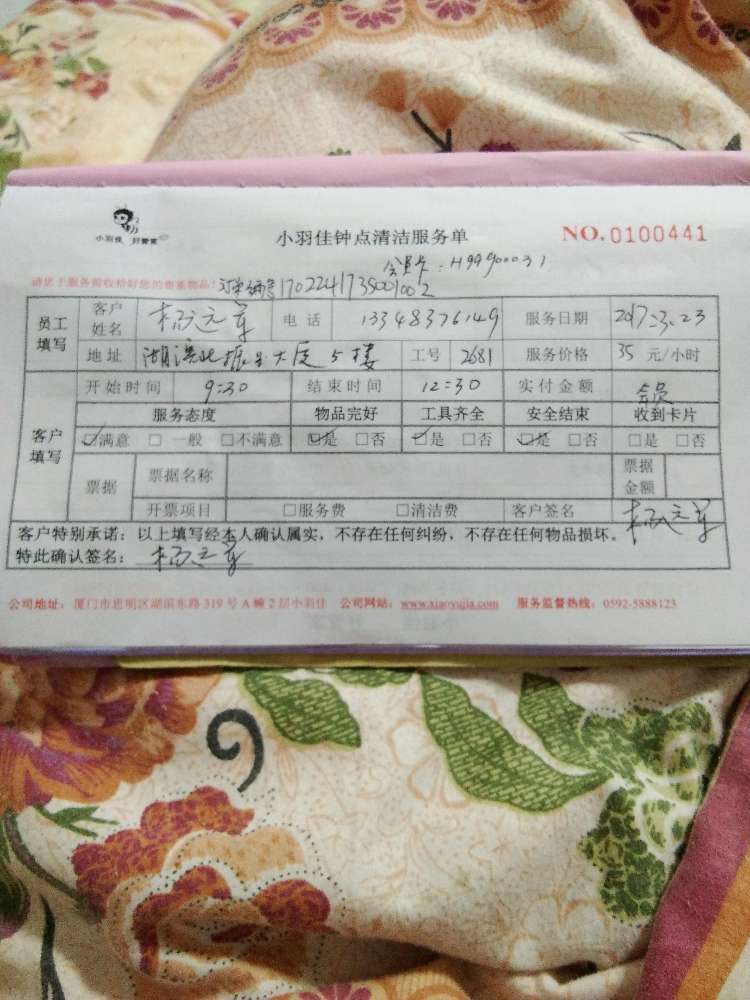 小羽佳 好管家
小羽佳钟点清洁服务单 NO.0100441
会员卡:H99900031
请您于服务前收拾好您的贵重物品! 订单编号1702241735001002
员工填写 客户姓名 电话 13348376149 服务日期 2017.3.23
地址 湖滨北 大厦5楼 工号 2681 服务价格 35 元/小时
客户填写 开始时间 9:30 结束时间 12:30 实付金额 会员
服务态度 物品完好 工具齐全 安全结束 收到卡片
☑满意 □一般 □不满意 ☑是 □否 ☑是 □否 ☑是 □否 □是 □否
票据 票据名称 票据金额
开票项目 □服务费 □清洁费 客户签名
客户特别承诺:以上填写经本人确认属实,不存在任何纠纷,不存在任何物品损坏。
特此确认签名:
公司地址:厦门市思明区湖滨东路319号A幢2层小羽佳 公司网站:www.xiaoyujia.com 服务监督热线:0592-5888123